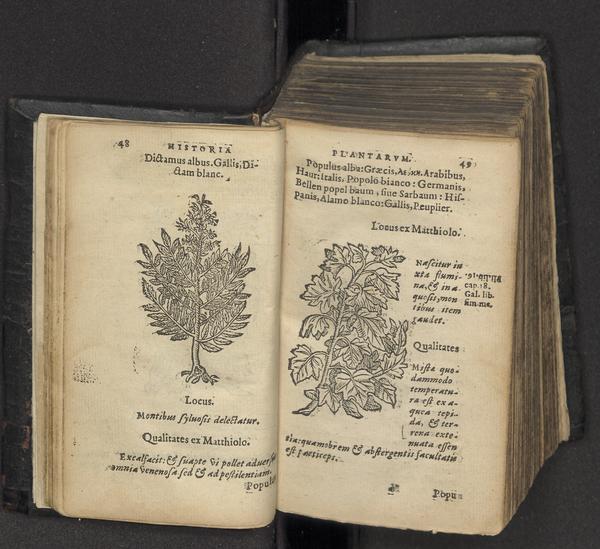 48
HISTORIA
Dictamus albus. Gallis, Di-
ctam blanc.
Locus.
Montibus syluosis delectatur.
Qualitates ex Matthiolo.
Excalfacit: & suapte vi pollet aduersus
omnia venenosa sed & ad pestilentiam.
Populus
PLANTARVM.
49
Populus alba: Græcis, Arabibus,
Haur: Italis, Popolo bianco: Germanis,
Bellen popel baum, siue Sarbaum: His-
panis, Alamo blanco: Gallis, Peuplier.
Locus ex Matthiolo.
Nascitur iu
xta flumi-
na, & in a-
quosis, mon
tibus item
gaudet.
cap. 18.
Gal. lib.
sim. me.
Qualitates
Mista quo-
dammodo
temperatu-
ra est ex a-
quea tepi-
da, & ter-
rena exte-
nuata essen
tia: quamobrem & abstergentis facultatis
est particeps.
Popu